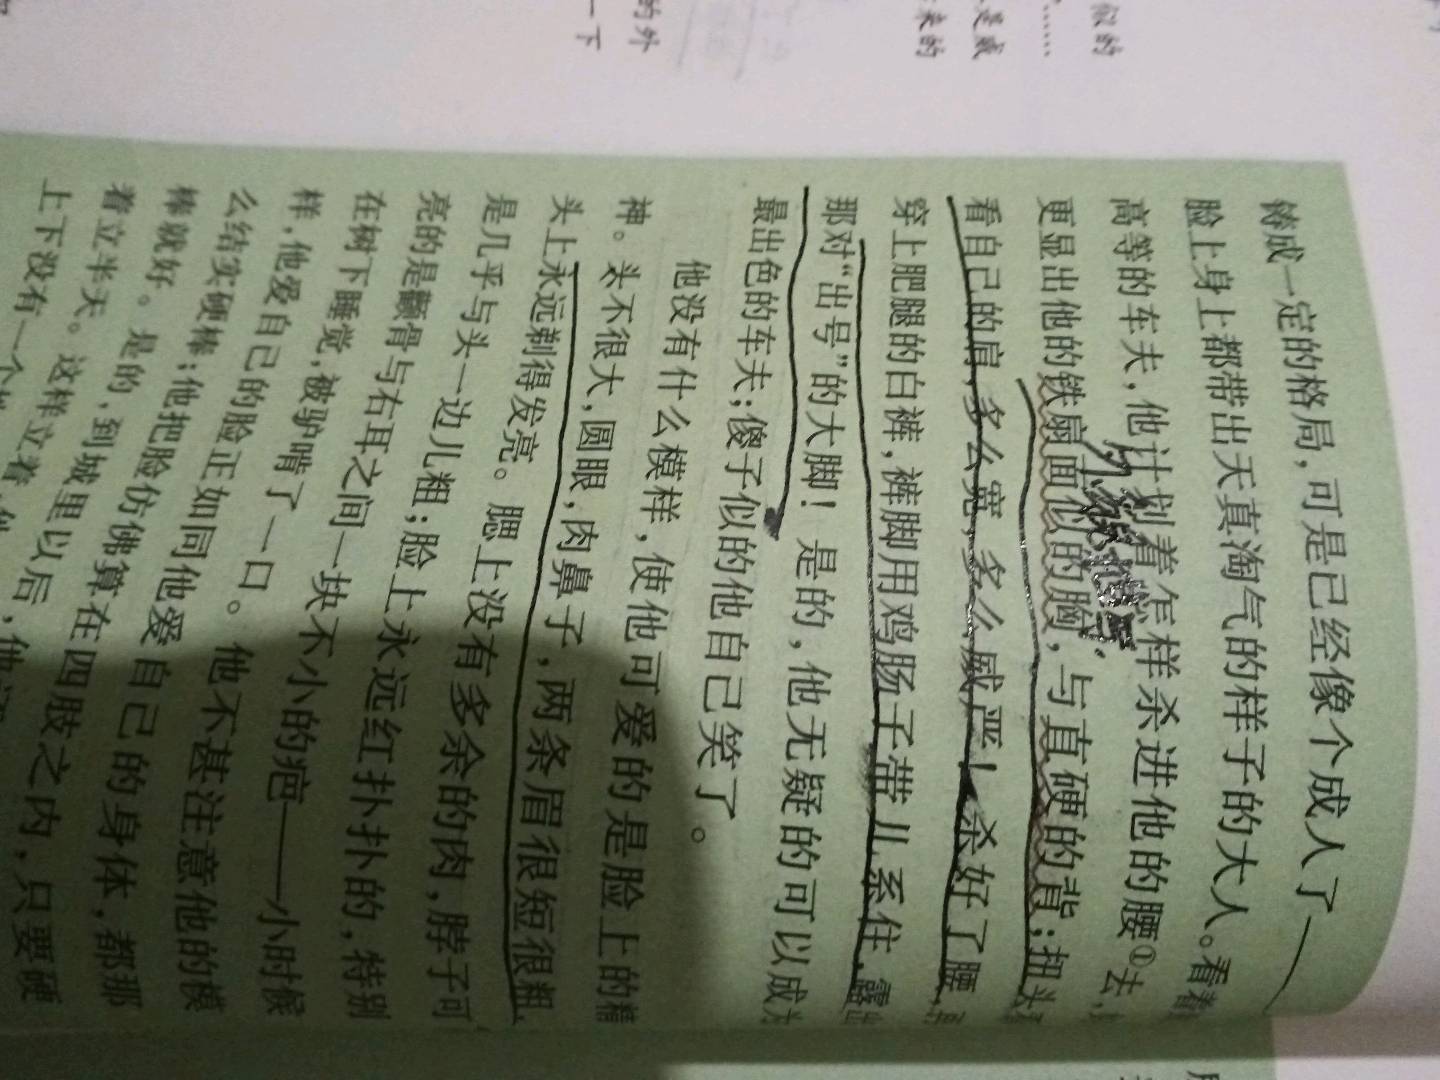 似的
……
是威
来的
的外
一下
铸成一定的格局，可是已经像个成人了——
脸上身上都带出天真淘气的样子的大人。看着
高等的车夫，他计划着怎样杀进他的腰①去，
外貌描写
更显出他的铁扇面似的胸，与直硬的背；扭头
看自己的肩，多么宽，多么威严！杀好了腰，再
穿上肥腿的白裤，裤脚用鸡肠子带儿系住，露出
那对“出号”的大脚！是的，他无疑的可以成为
最出色的车夫；傻子似的他自己笑了。
他没有什么模样，使他可爱的是脸上的精
神。头不很大，圆眼，肉鼻子，两条眉很短很粗，
头上永远剃得发亮。腮上没有多余的肉，脖子可
是几乎与头一边儿粗；脸上永远红扑扑的，特别
亮的是颧骨与右耳之间一块不小的疤——小时候
在树下睡觉，被驴啃了一口。他不甚注意他的模
样，他爱自己的脸正如同他爱自己的身体，都那
么结实硬棒；他把脸仿佛算在四肢之内，只要硬
棒就好。是的，到城里以后，他
着立半天。这样立着，
上下没有一个